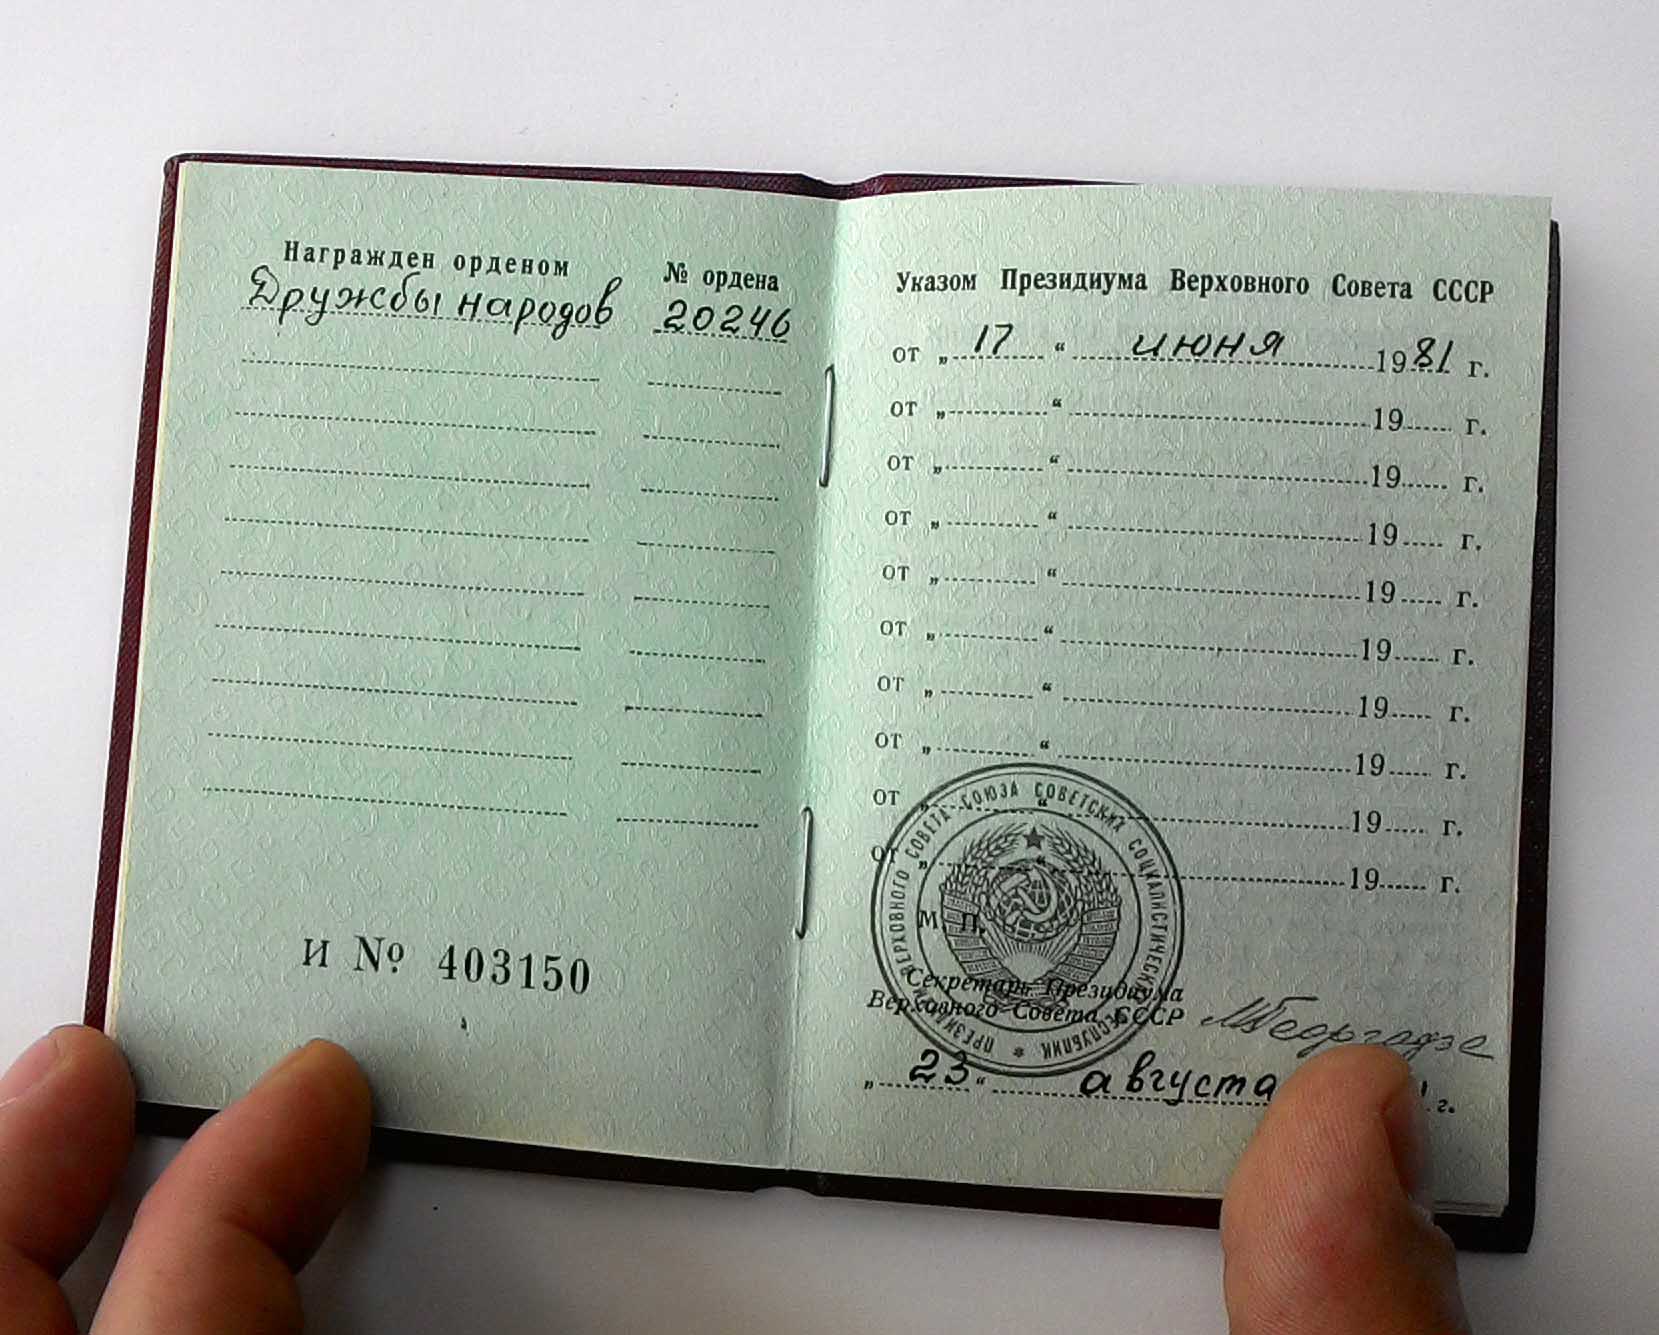 Награжден орденом № ордена
Дружбы народов 20246
И № 403150
Указом Президиума Верховного Совета СССР
от „ 17 “ июня 1981 г.
от „ “ 19 г.
от „ “ 19 г.
от „ “ 19 г.
от „ “ 19 г.
от „ “ 19 г.
от „ “ 19 г.
от „ “ 19 г.
от „ “ 19 г.
от „ “ 19 г.
ПРЕЗИДИУМ ВЕРХОВНОГО СОВЕТА СОЮЗА СОВЕТСКИХ СОЦИАЛИСТИЧЕСКИХ РЕСПУБЛИК
М. П.
Секретарь Президиума
Верховного Совета СССР МГеоргадзе
„ 23 “ августа г.